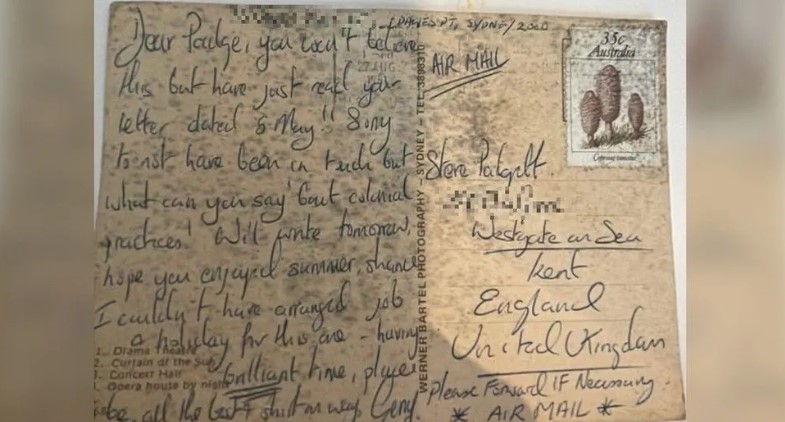 (DAWES PT, SYDNEY 2000
Dear Padge, you won't believe
this but have just read your
letter dated 5 May!! Sorry
to not have been in touch but
what can you say 'bout colonial
practices! Will write tomorrow,
hope you enjoyed summer, shame
I couldn't have arranged job
a holiday for this one - having
brilliant time, player
all the best &
Geny.
1. Drama Theatre
2. Curtain of the Sun
3. Concert Hall
4. Opera house by night
WERNER BARTEL PHOTOGRAPHY – SYDNEY – TEL:
35c
Australia
AIR MAIL
Steve Padgett.
Westgate on Sea
Kent
England
United Kingdom
Please Forward IF Necessary.
* AIR MAIL *